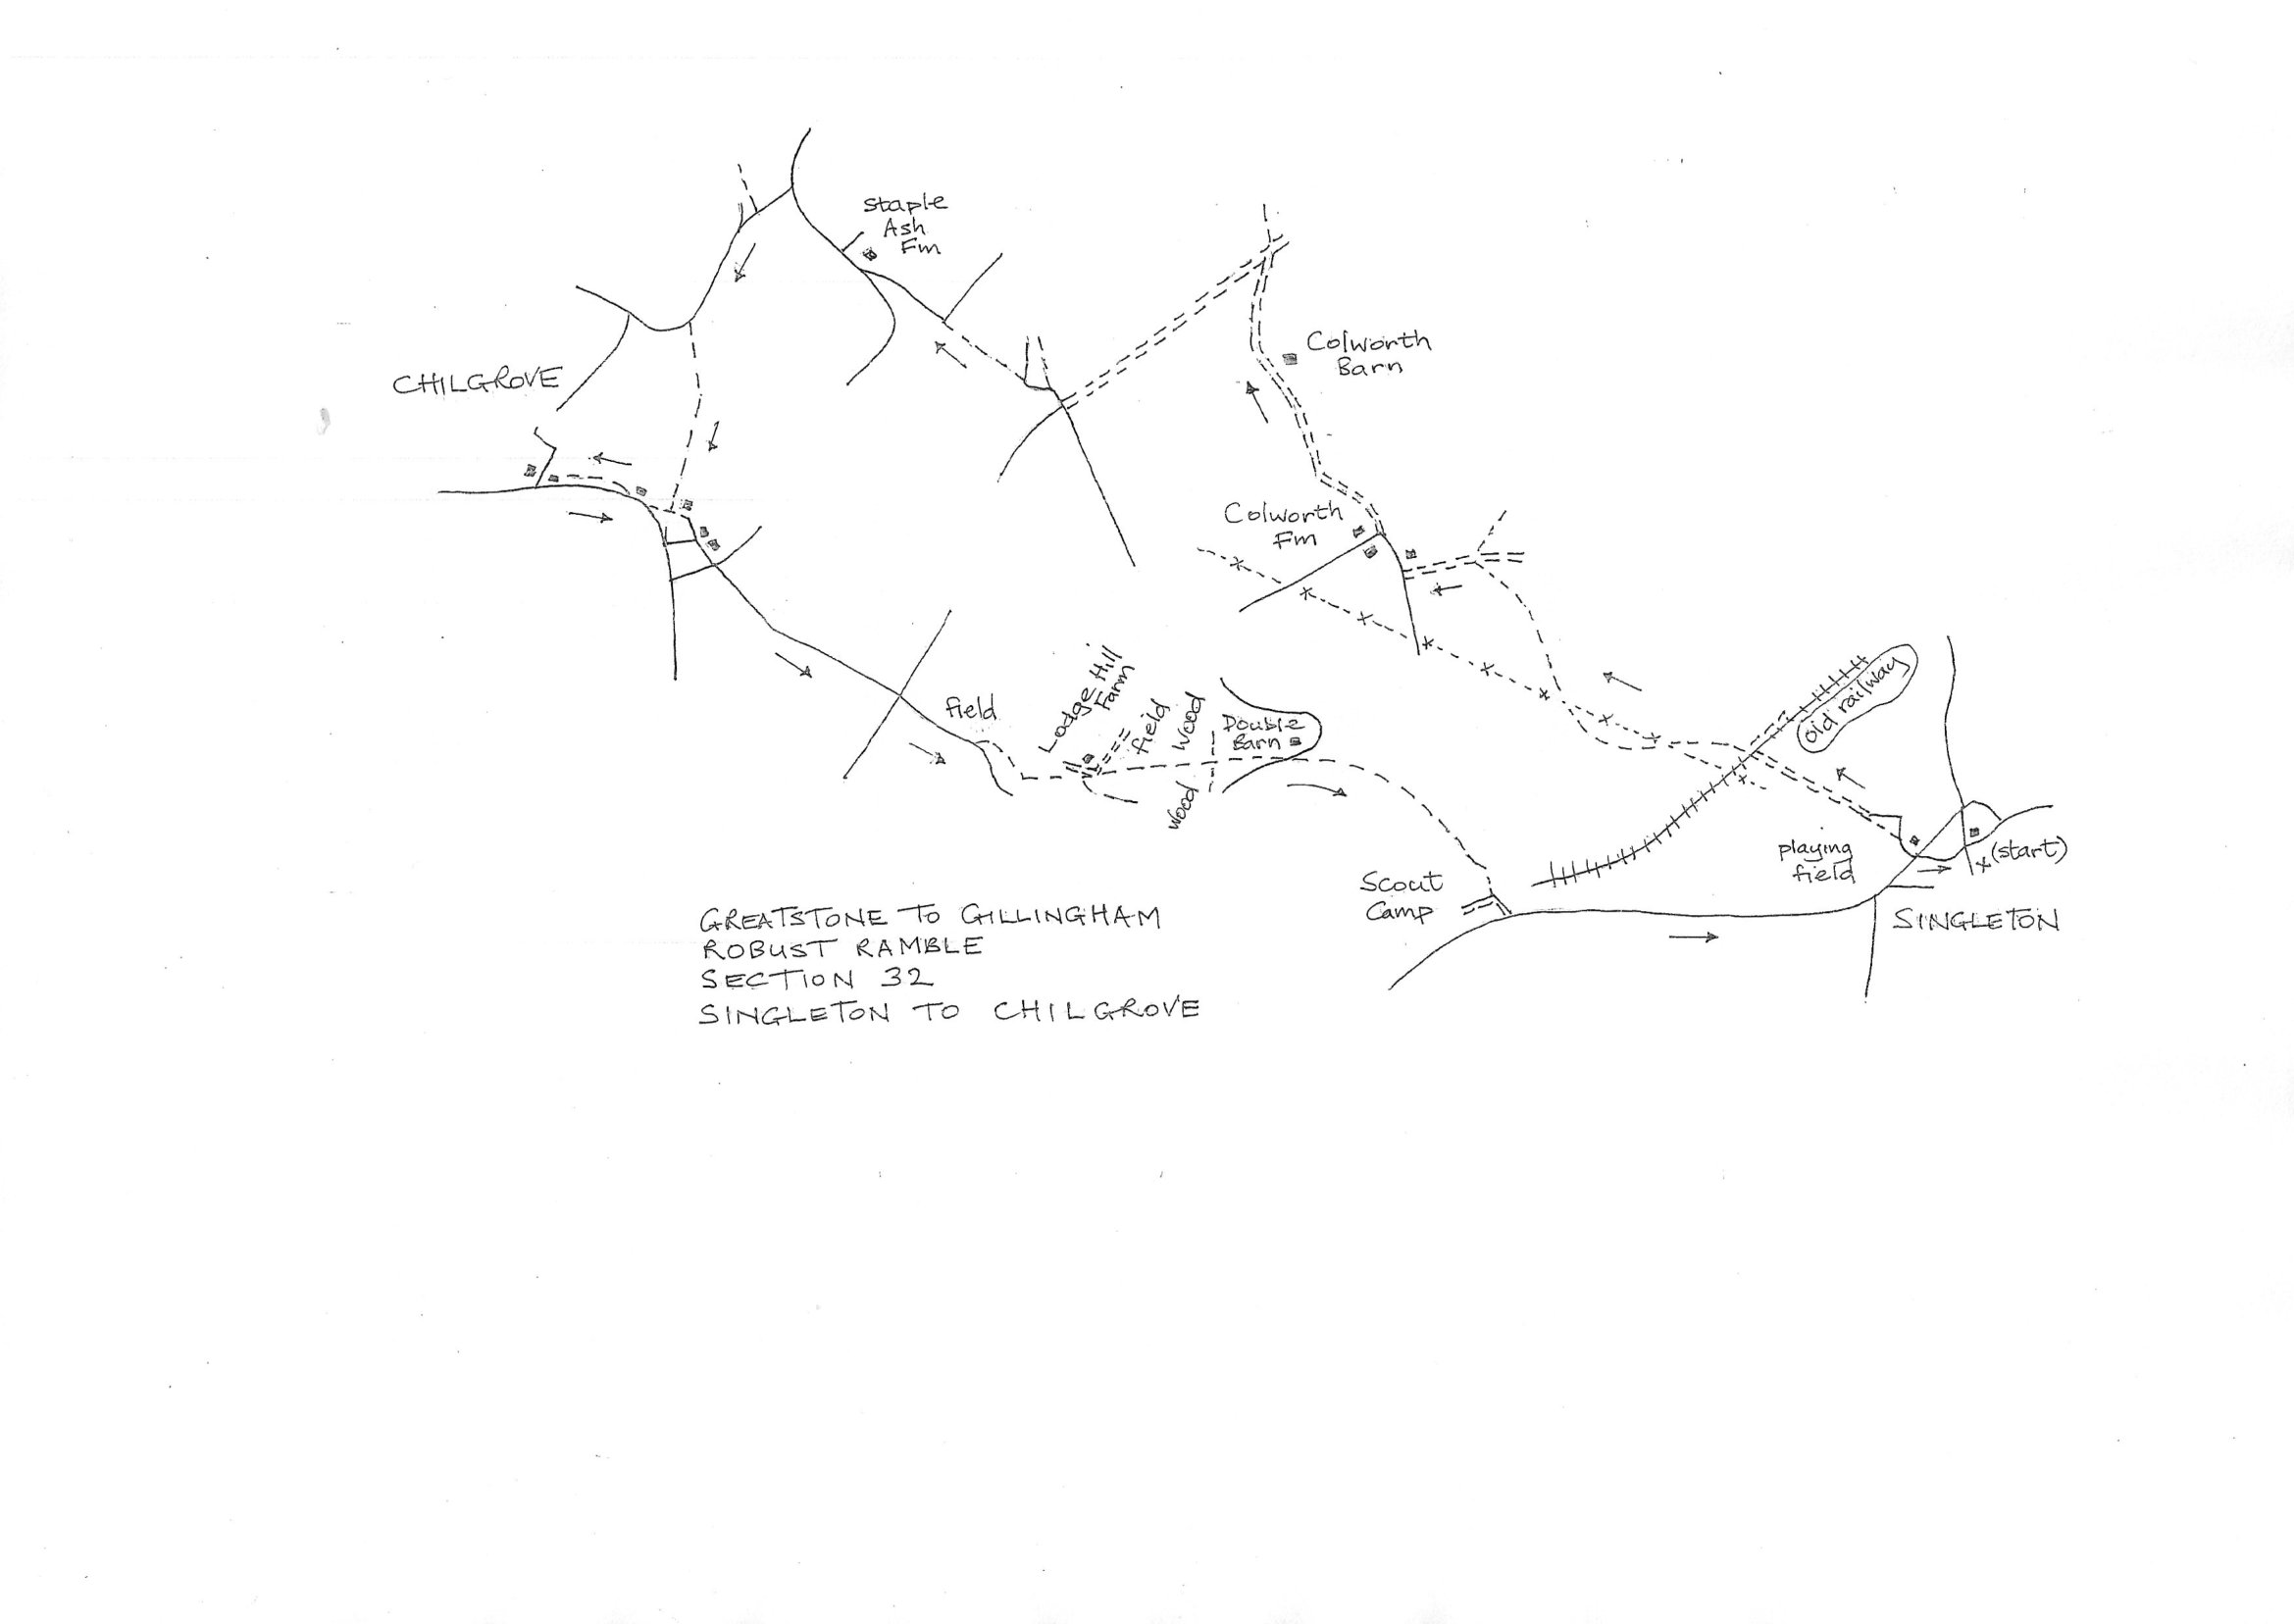 Staple
Ash
Fm
Colworth
Barn
CHILGROVE
Colworth
Fm
Lodge Hill
Farm
field
field
Wood
Wood
Double
Barn
old railway
playing
field
(start)
Scout
Camp
SINGLETON
GREATSTONE TO GILLINGHAM
ROBUST RAMBLE
SECTION 32
SINGLETON TO CHILGROVE